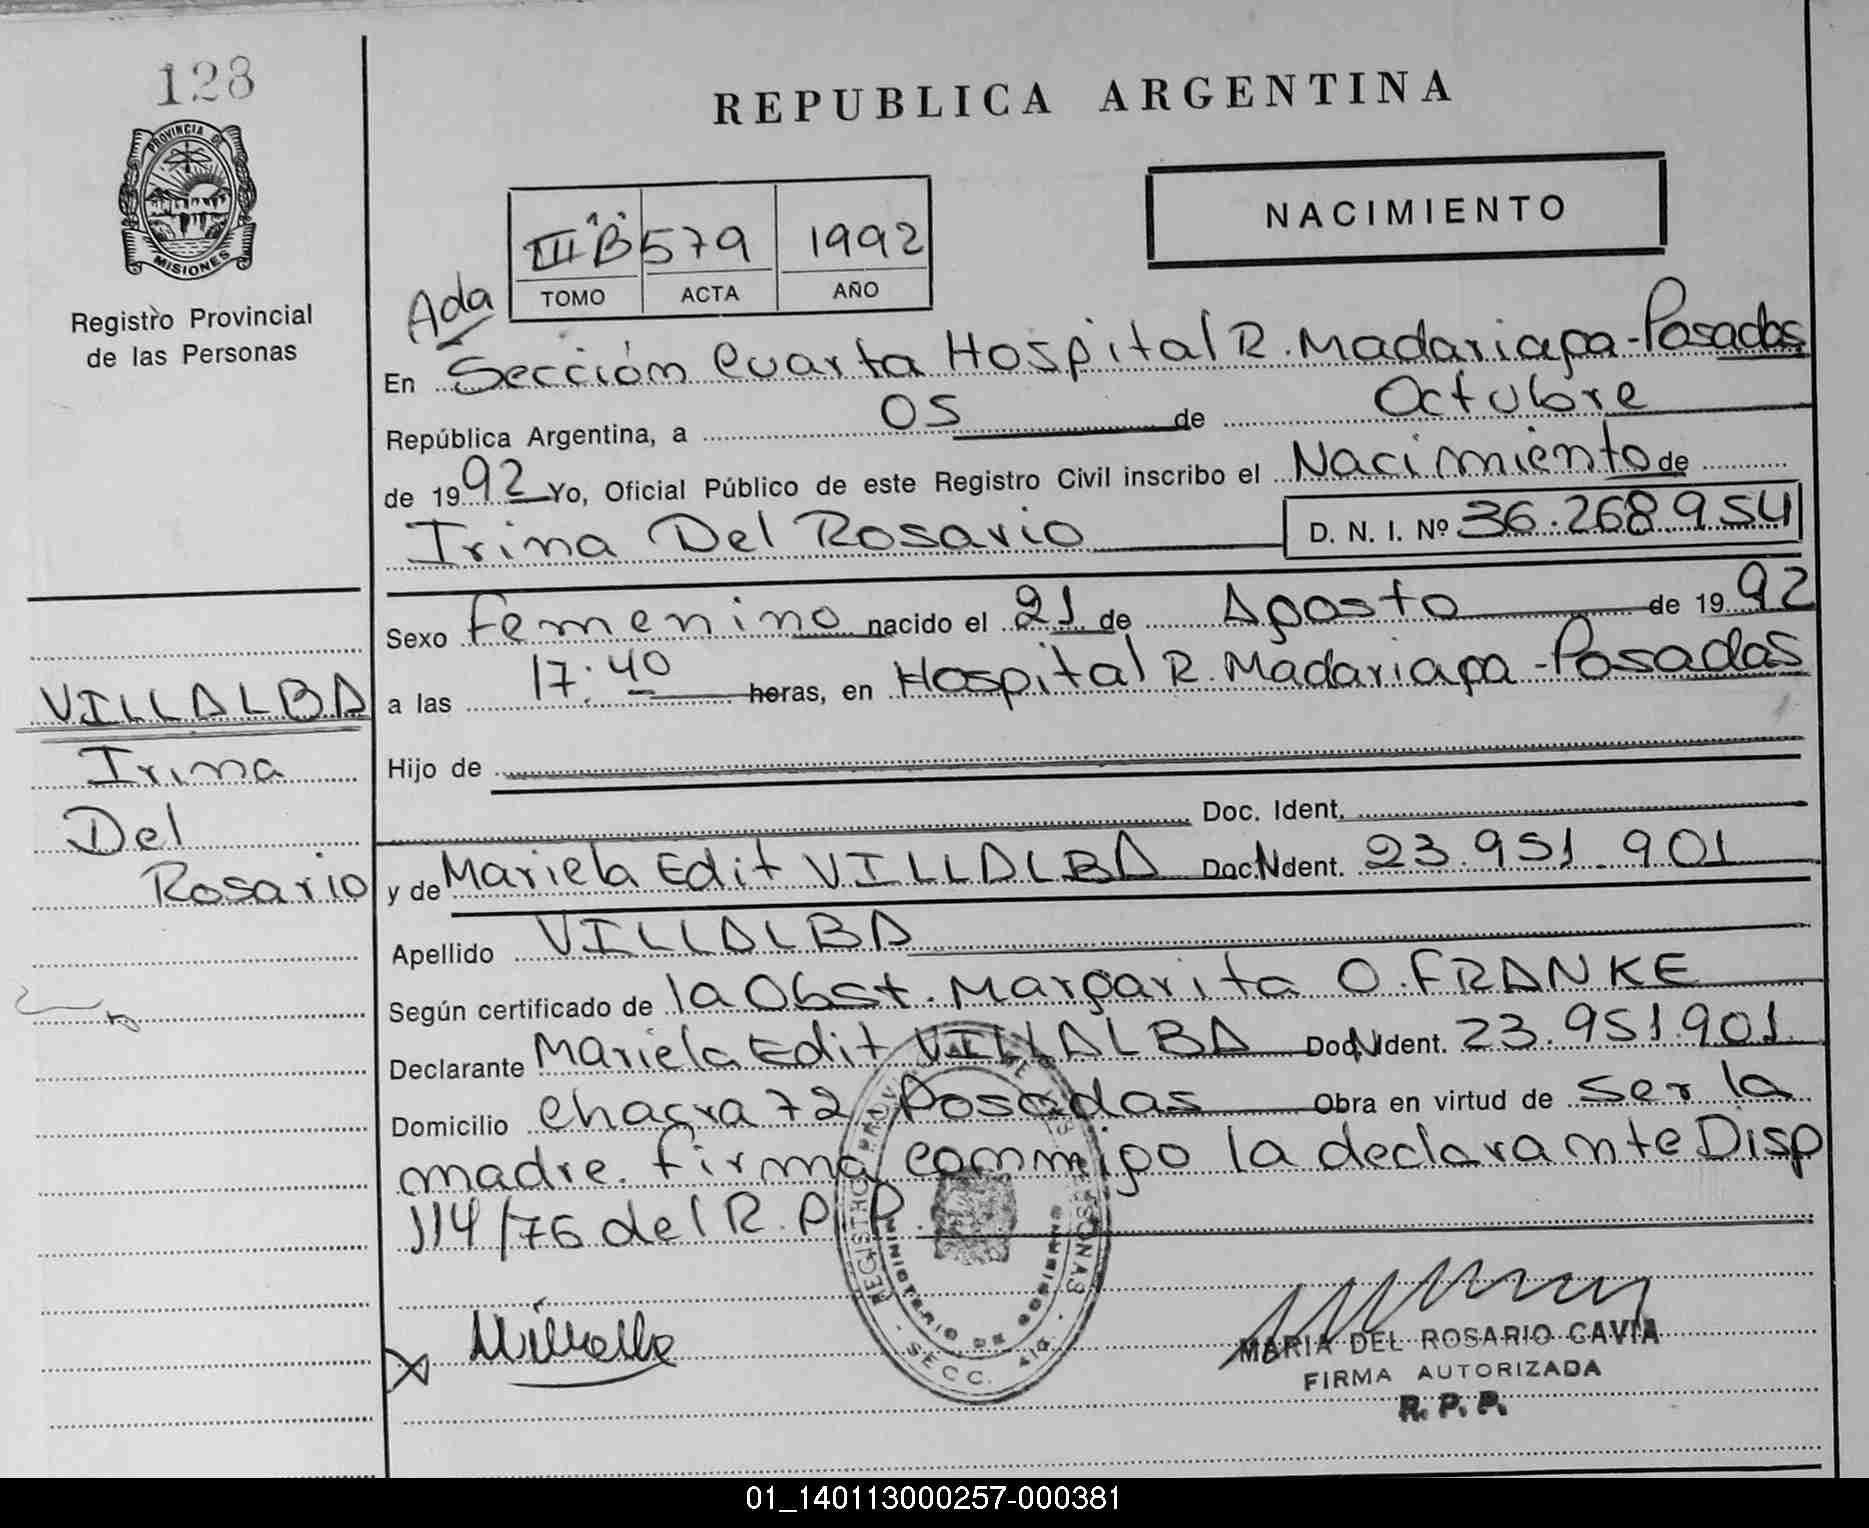 128
REPUBLICA ARGENTINA
PROVINCIA DE
MISIONES
Registro Provincial
de las Personas
NACIMIENTO
III "B" 579 1992
TOMO ACTA AÑO
Ada
En Sección Cuarta Hospital R. Madariaga-Posadas
República Argentina, a 05 de Octubre
de 1992 Yo, Oficial Público de este Registro Civil inscribo el Nacimiento de
Irina Del Rosario D. N. I. Nº 36.268.954
Sexo Femenino nacido el 21 de Agosto de 1992
a las 17:40 horas, en Hospital R. Madariaga-Posadas
Hijo de
Doc. Ident.
y de Mariela Edit VILLALBA Doc.N Ident. 23.951.901
Apellido VILLALBA
Según certificado de la Obst. Margarita O. FRANKE
Declarante Mariela Edit VILLALBA Doc.N Ident. 23.951.901.
Domicilio Chacra 72 Posadas Obra en virtud de ser la
madre. Firma conmigo la declarante Disp
114/76 del R.P.P.
VILLALBA
Irina
Del
Rosario
MINISTERIO DE GOBIERNO
SECC.
MARIA DEL ROSARIO CAVIA
FIRMA AUTORIZADA
R. P. P.
01_140113000257-000381